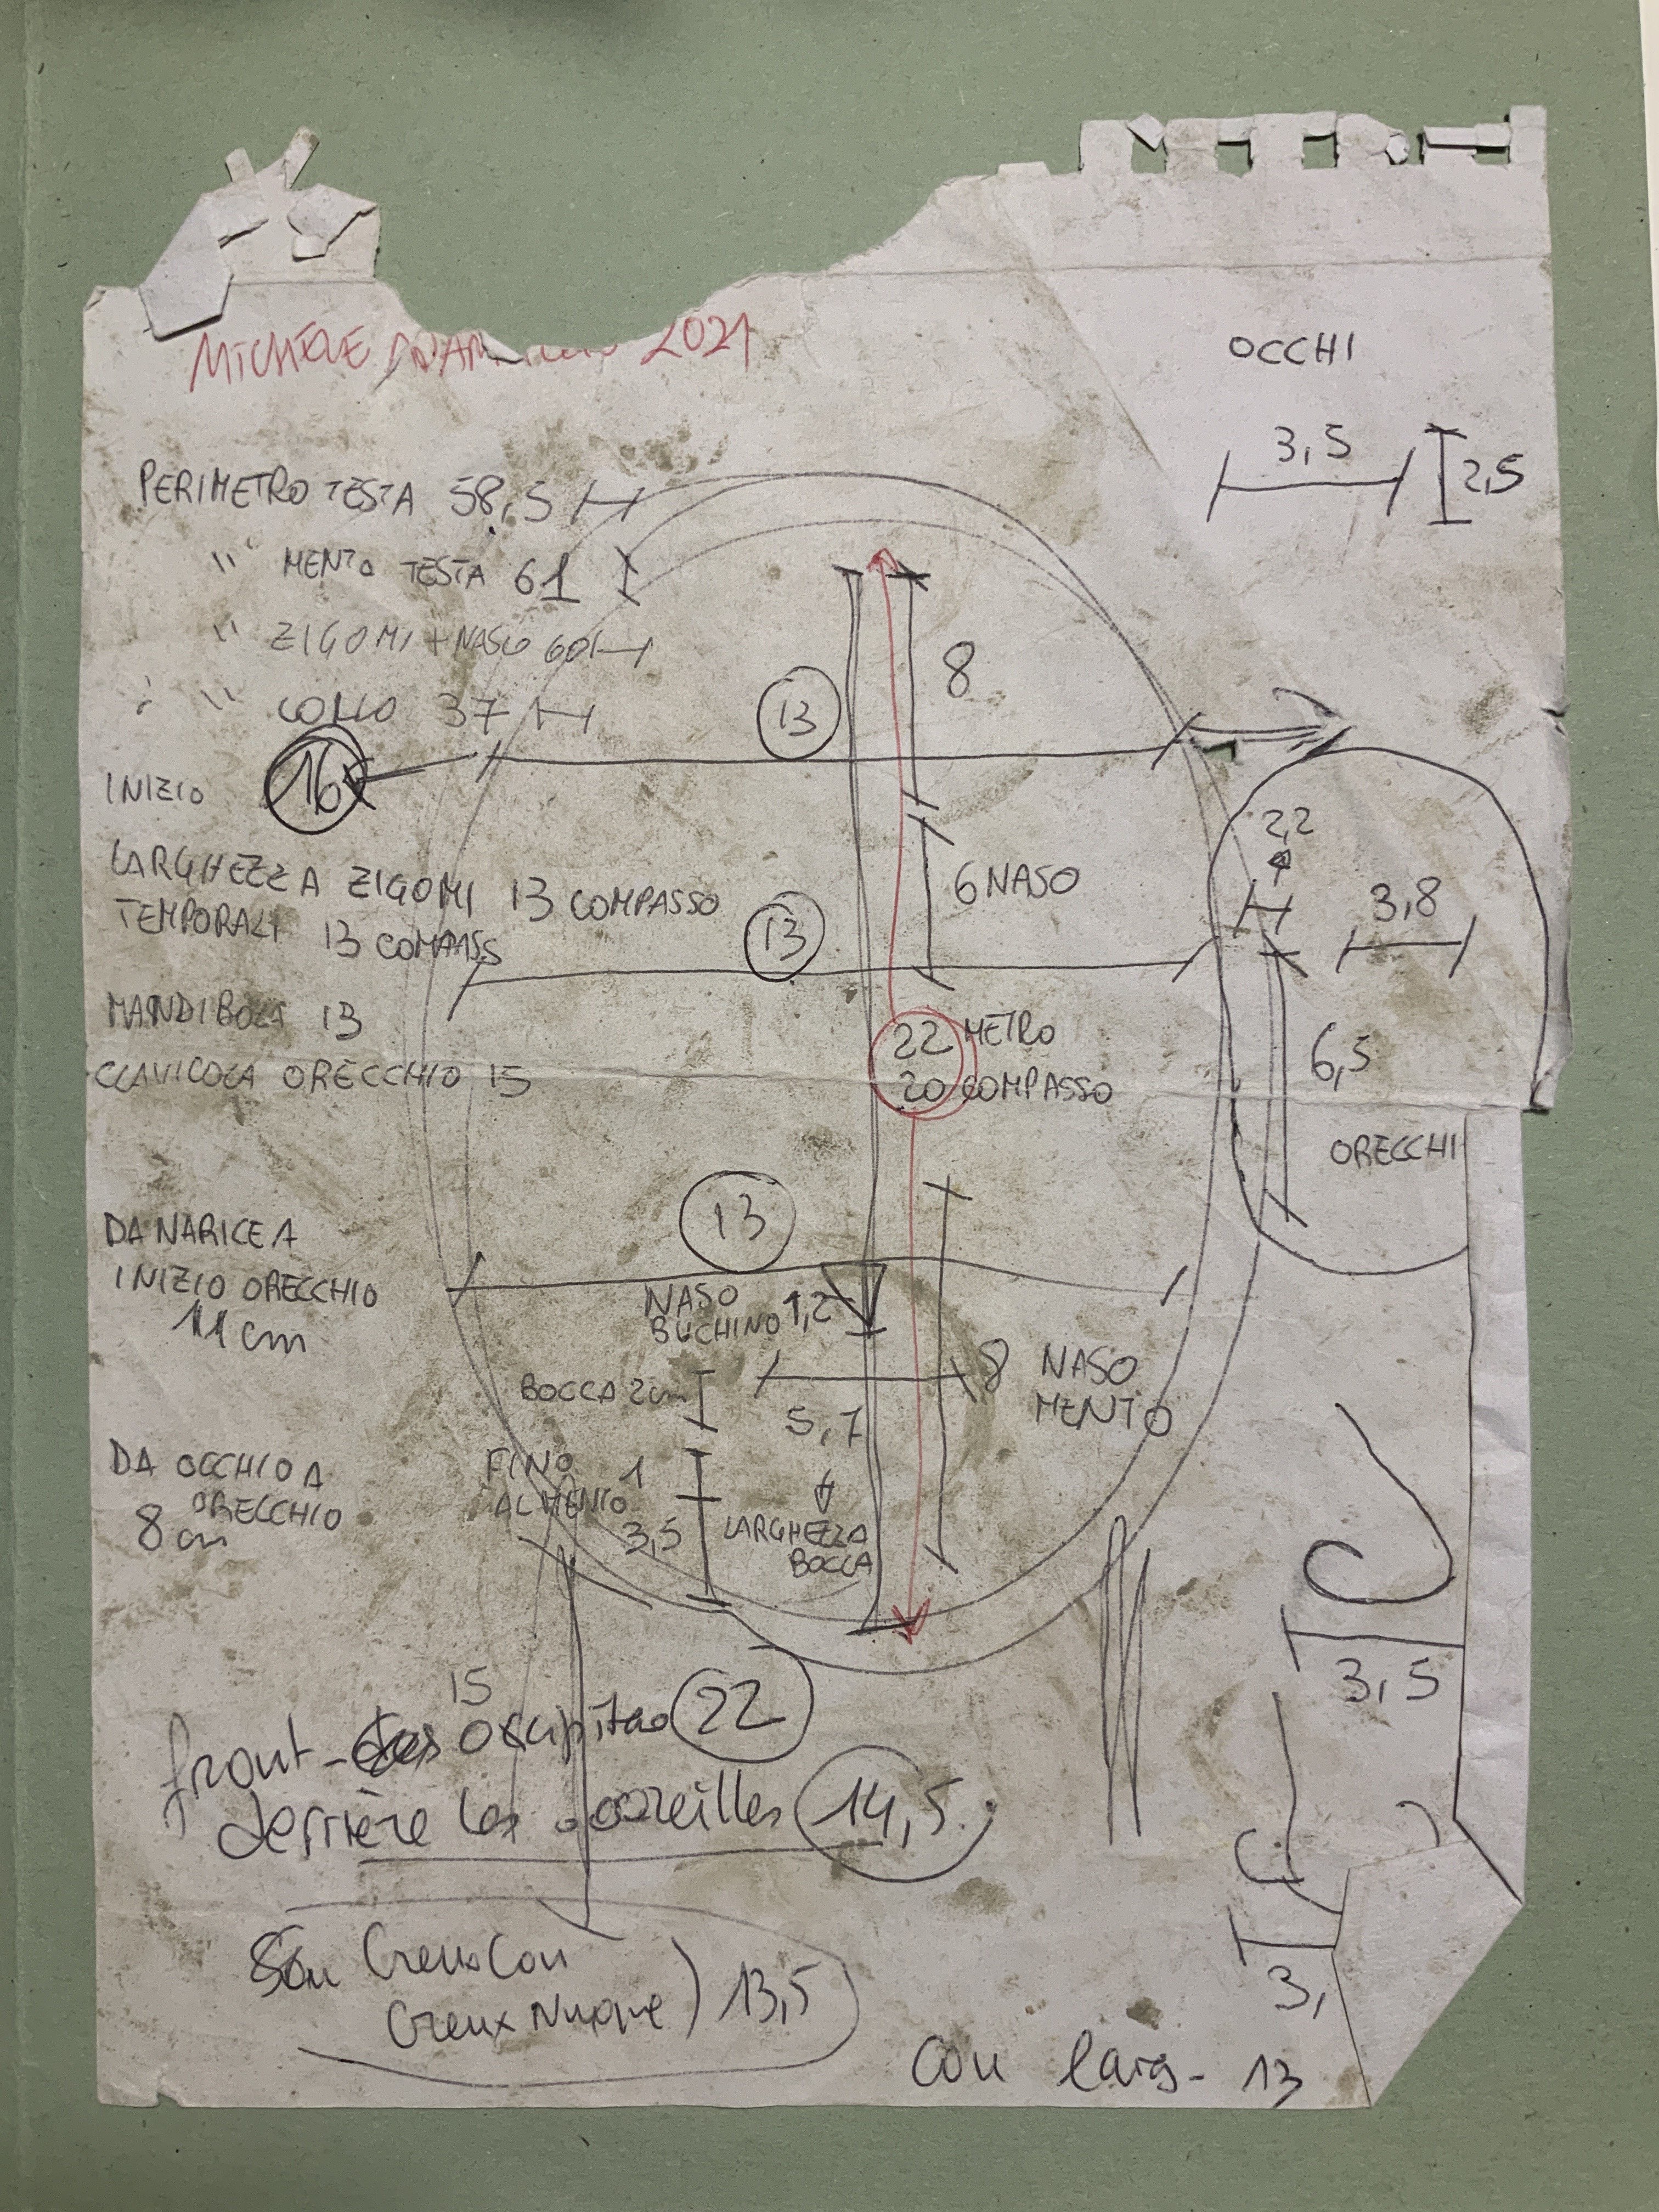 MICHELE 2021
OCCHI
3,5
2,5
PERIMETRO TESTA 58,5
" MENTO TESTA 61
" ZIGOMI + NASO 60
" COLLO 37
8
13
INIZIO 16
2,2
3,8
LARGHEZZA ZIGOMI 13 COMPASSO
TEMPORALI 13 COMPASS
13
6 NASO
MANDIBOLA 13
22 METRO
20 COMPASSO
CLAVICOLA ORECCHIO 15
6,5
ORECCHI
DA NARICE A
INIZIO ORECCHIO
11 cm
13
NASO
BUCHINO 1,2
BOCCA 2cm
5,7
8 NASO
MENTO
DA OCCHIO A
ORECCHIO
8 cm
FINO 1
AL MENTO
3,5
LARGHEZZA
BOCCA
3,5
15
front- 22
derrière les oreilles 14,5
Creux Cou
Creux Nuque) 13,5
3,
Cou larg- 13